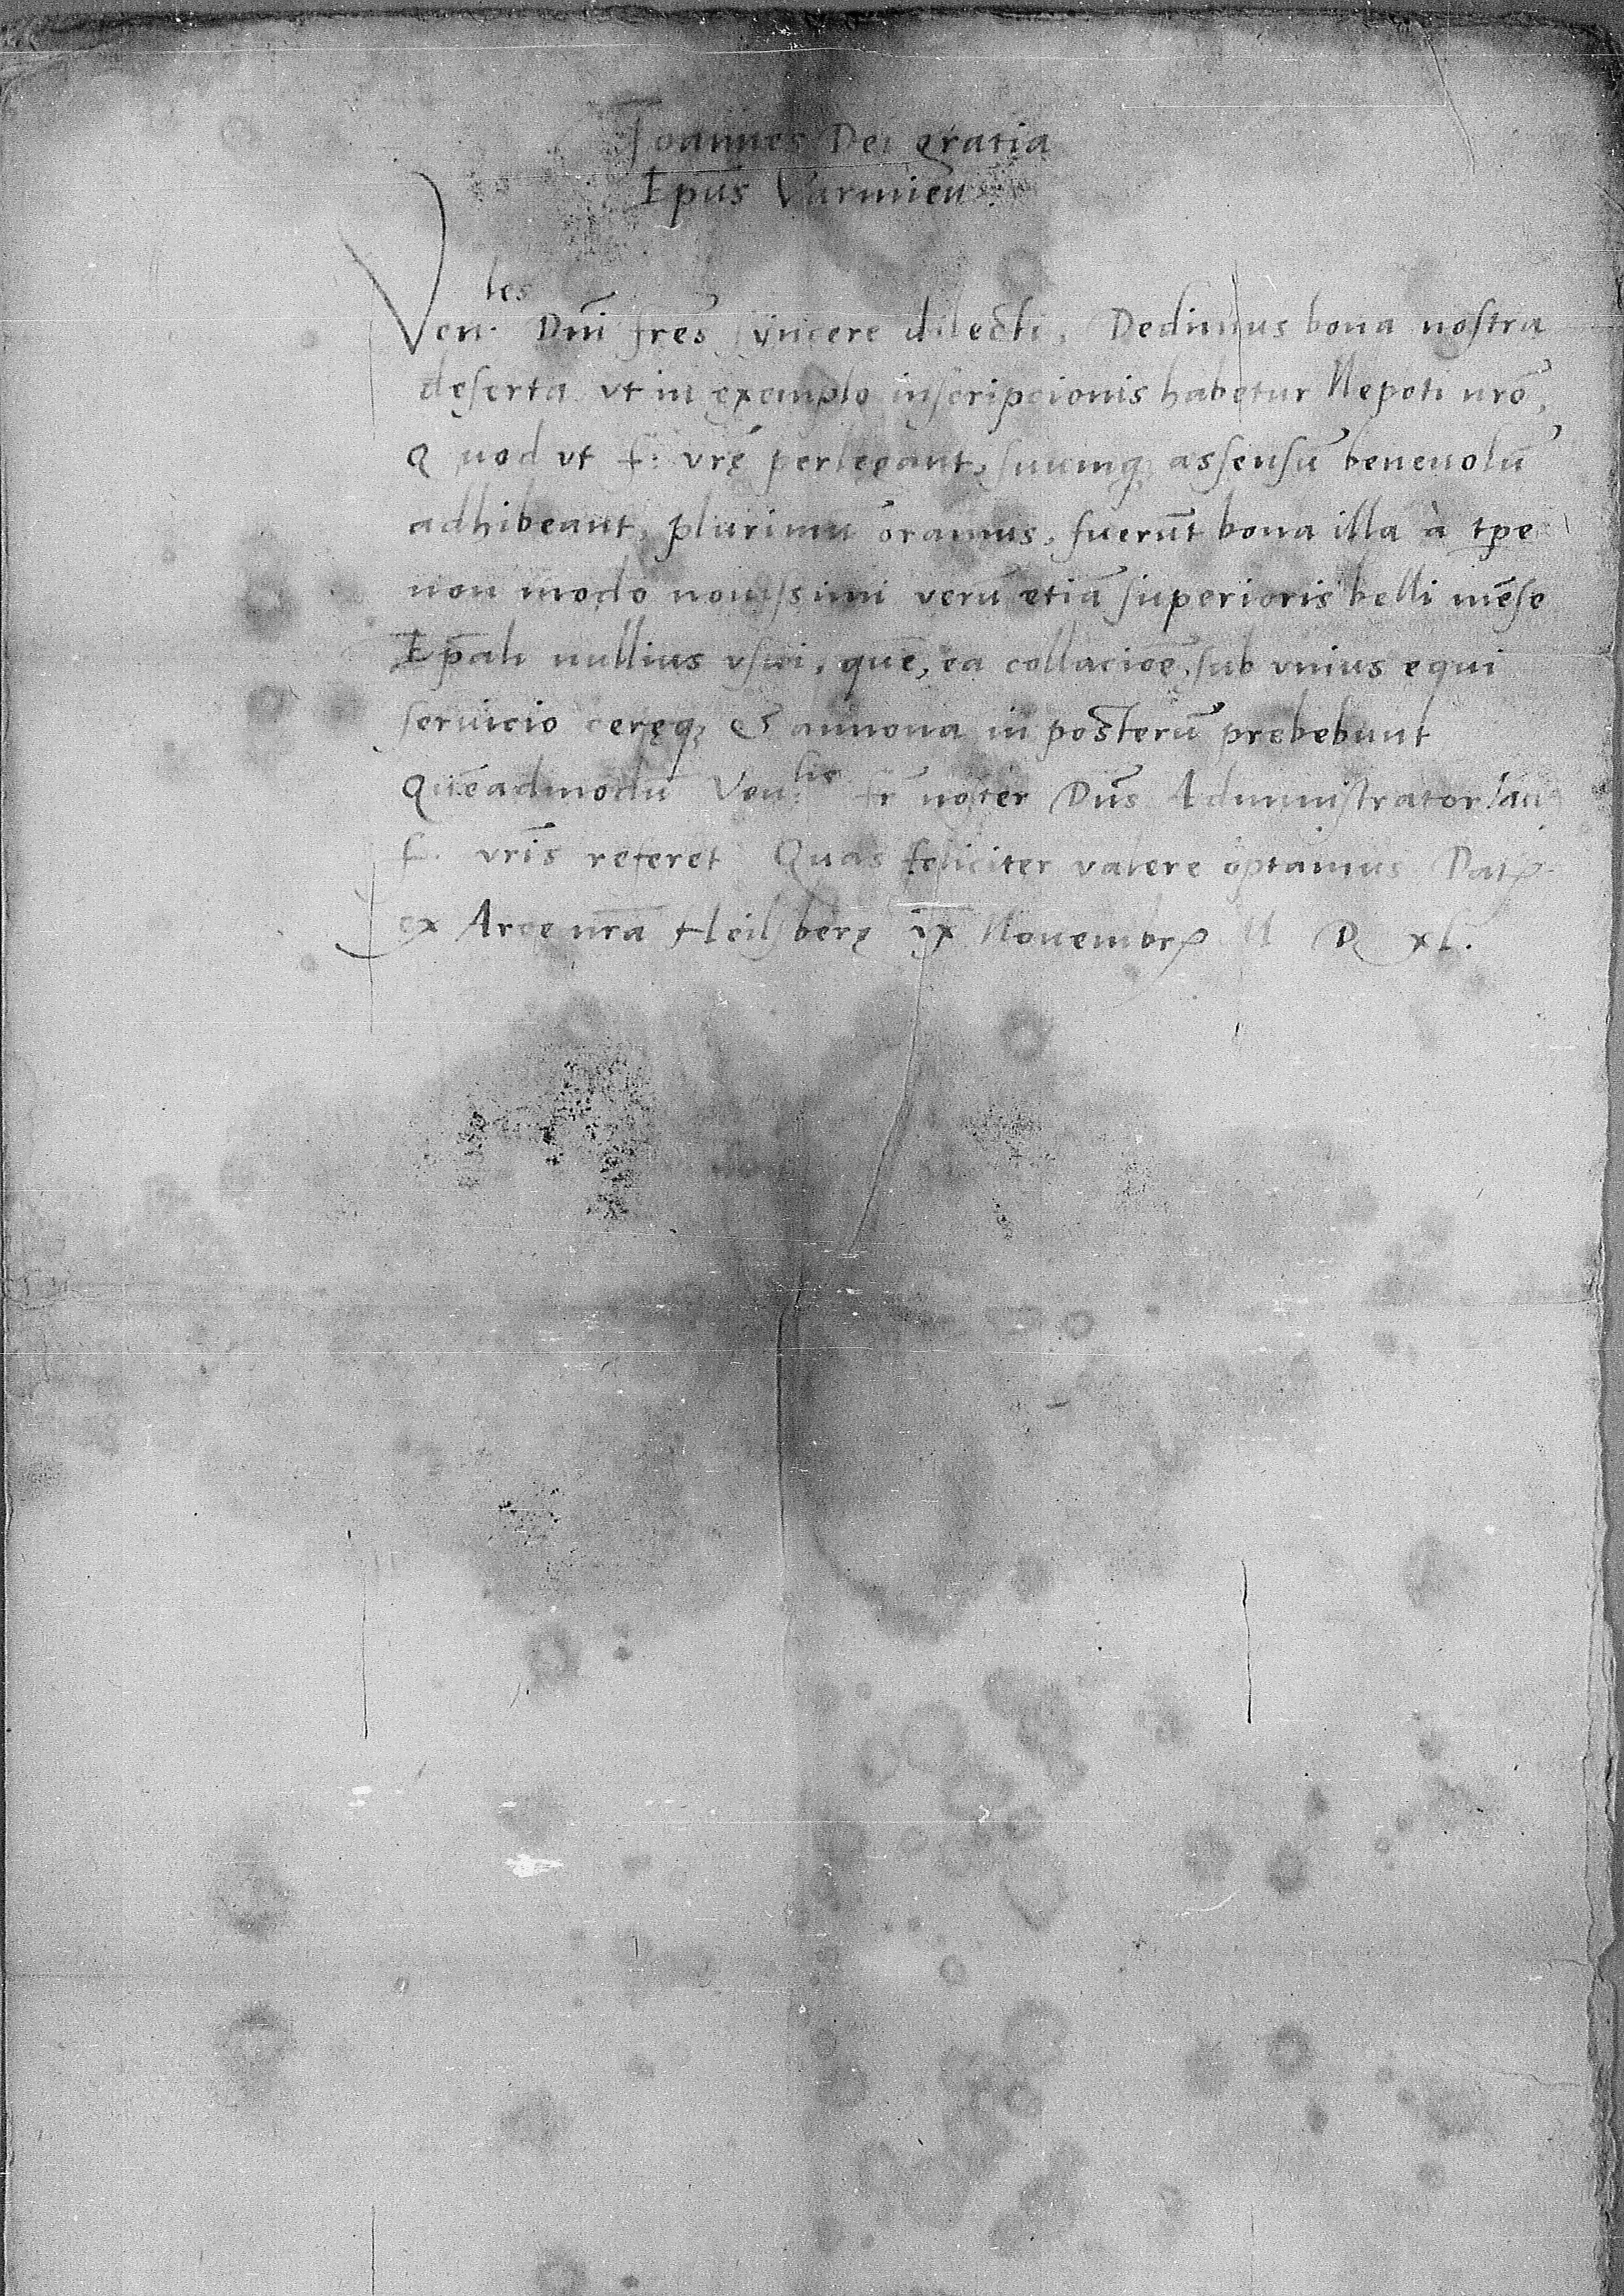 Joannes Dei gratia
Epus Varmien̄
Ven:les Dn̄i fres̄ syncere dilecti, Dedimus bona nostra
deserta vt in exemplo inscripcionis habetur Nepoti nrō,
Quod vt f: vrę̄ perlegant, suumq; assensū beneuolū
adhibeant, plurimū oramus, fuerūt bona illa à tp̄e
non modo nouissimi verū etiā superioris belli mēse
Ep̄ali nullius vsui, quē, ea collaciōe, sub vnius equi
seruicio ceręq; & annona in posterū prebebunt
Quēadmodū Ven:lis fr̄ noster Dn̄s Administrator
f. vrīs referet Quas feliciter valere optamus Dat̄
ex Arce nrā Heilsberg ix Nouembr̄ M D xL.